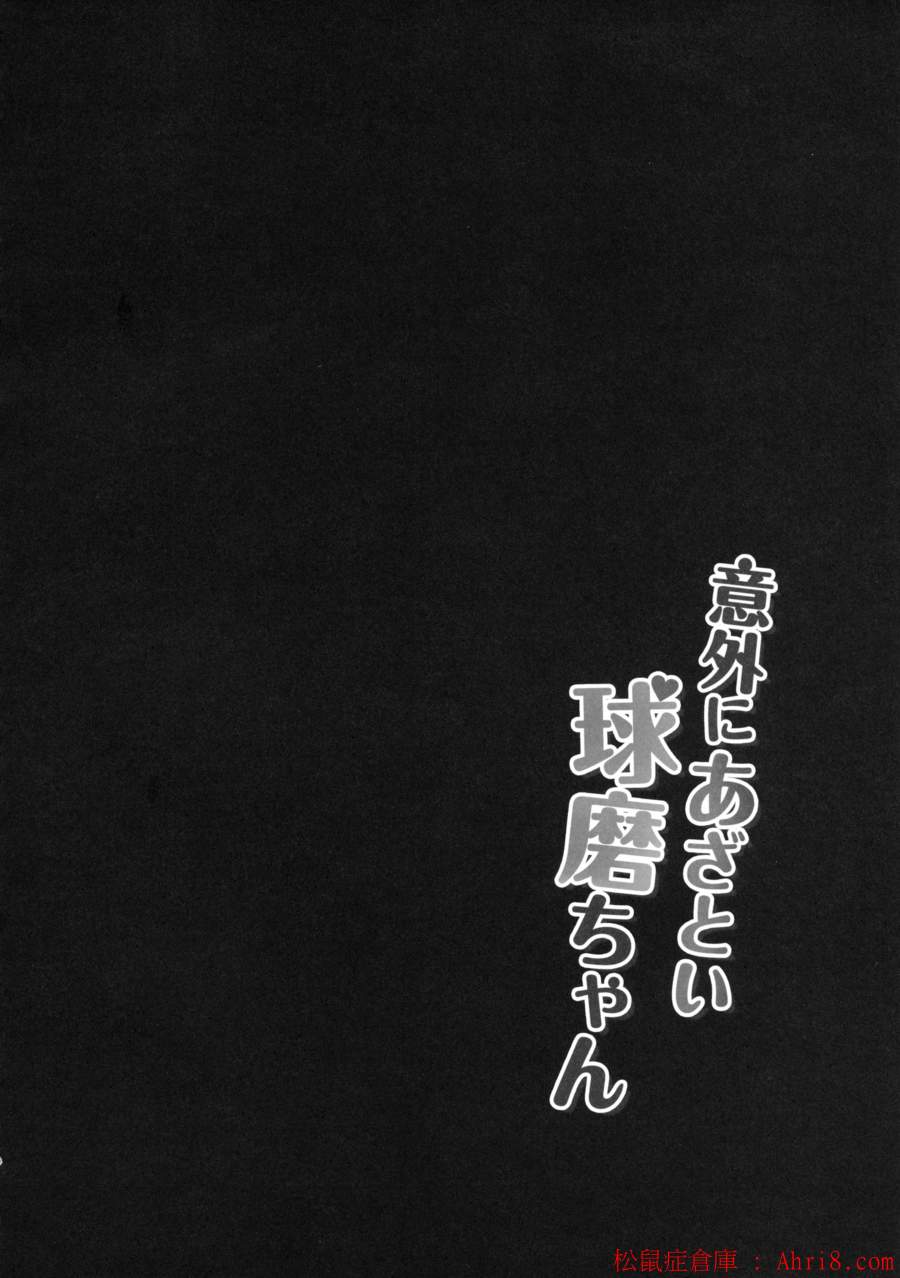 意外にあざとい
球磨ちゃん
松鼠症倉庫 : Ahri8.com